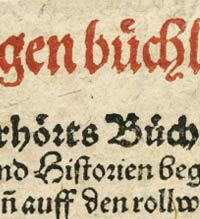 gen büchl
rhörts Büch
nd Historien beg
n̄ auff den rollw